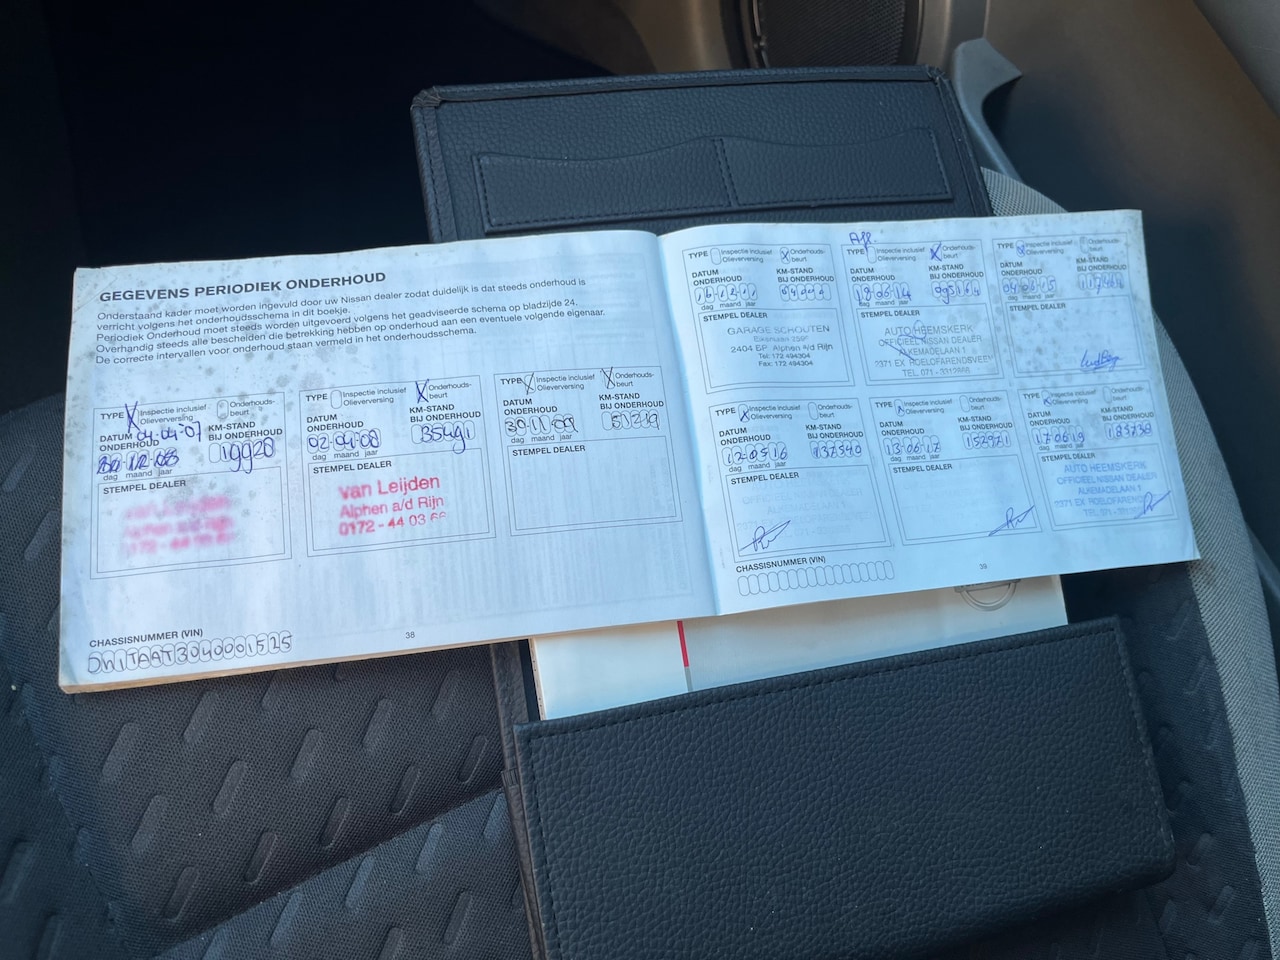 GEGEVENS PERIODIEK ONDERHOUD
Onderstaand kader moet worden ingevuld door uw Nissan dealer zodat duidelijk is dat steeds onderhoud is
verricht volgens het onderhoudsschema in dit boekje.
Periodiek Onderhoud moet steeds worden uitgevoerd volgens het geadviseerde schema op bladzijde 24.
Overhandig steeds alle bescheiden die betrekking hebben op onderhoud aan een eventuele volgende eigenaar.
De correcte intervallen voor onderhoud staan vermeld in het onderhoudsschema.
TYPE X Inspectie inclusief Olieverversing Onderhouds-beurt
DATUM ONDERHOUD KM-STAND BIJ ONDERHOUD
04-04-07 19920
dag maand jaar
STEMPEL DEALER
TYPE Inspectie inclusief Olieverversing X Onderhouds-beurt
DATUM ONDERHOUD KM-STAND BIJ ONDERHOUD
02-04-08 35491
dag maand jaar
STEMPEL DEALER
van Leijden
Alphen a/d Rijn
0172 - 44 03 66
TYPE X Inspectie inclusief Olieverversing X Onderhouds-beurt
DATUM ONDERHOUD KM-STAND BIJ ONDERHOUD
30-11-09
dag maand jaar
STEMPEL DEALER
CHASSISNUMMER (VIN)
38
TYPE Inspectie inclusief Olieverversing X Onderhouds-beurt
DATUM ONDERHOUD KM-STAND BIJ ONDERHOUD
dag maand jaar
STEMPEL DEALER
GARAGE SCHOUTEN
2404 BP Alphen a/d Rijn
Tel: 172 494304
Fax: 172 494304
TYPE Inspectie inclusief Olieverversing X Onderhouds-beurt
DATUM ONDERHOUD KM-STAND BIJ ONDERHOUD
18 06 14 99364
dag maand jaar
STEMPEL DEALER
AUTO HEEMSKERK
OFFICIEEL NISSAN DEALER
ALKEMADELAAN 1
2371 EX ROELOFARENDSVEEN
TYPE X Inspectie inclusief Olieverversing Onderhouds-beurt
DATUM ONDERHOUD KM-STAND BIJ ONDERHOUD
04 06 15
dag maand jaar
STEMPEL DEALER
TYPE X Inspectie inclusief Olieverversing Onderhouds-beurt
DATUM ONDERHOUD KM-STAND BIJ ONDERHOUD
12 05 16 137340
dag maand jaar
STEMPEL DEALER
TYPE X Inspectie inclusief Olieverversing Onderhouds-beurt
DATUM ONDERHOUD KM-STAND BIJ ONDERHOUD
13 06 17 152971
dag maand jaar
STEMPEL DEALER
TYPE X Inspectie inclusief Olieverversing Onderhouds-beurt
DATUM ONDERHOUD KM-STAND BIJ ONDERHOUD
17 06 19 185738
dag maand jaar
STEMPEL DEALER
AUTO HEEMSKERK
OFFICIEEL NISSAN DEALER
ALKEMADELAAN 1
2371 EX ROELOFARENDSVEEN
CHASSISNUMMER (VIN)
39